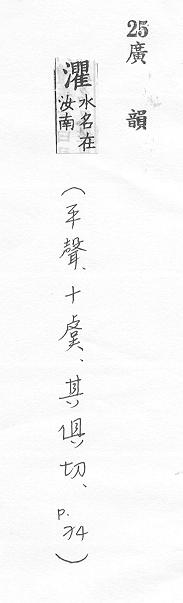 25 廣韻
灈 水名在
汝南
(平聲、十虞、其俱切、p.74)